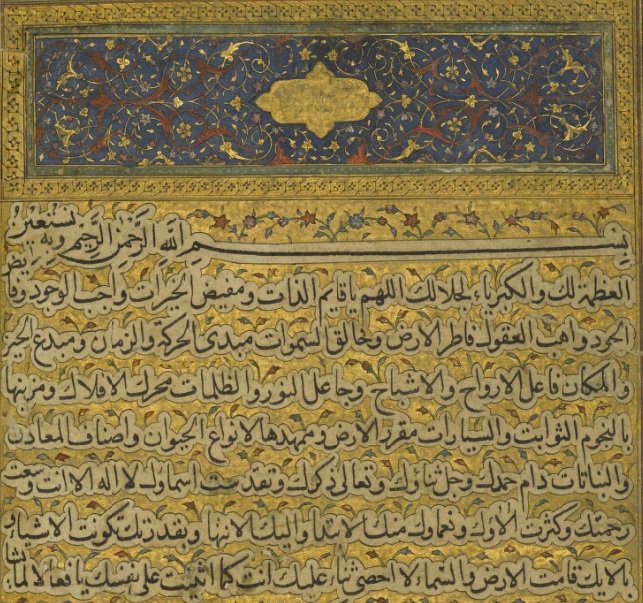 بسم الله الرحمن الرحيم وبه نستعين
العظمة لك والكبرياء لجلالك اللهم يا قايم الذات ومفيض الخيرات واجب الوجود وفايض
الجود واهب العقول فاطر الارض وخالق السموات مبدئ الحركة والزمان ومبدع الحيز
والمكان فاعل الارواح والاشباح وجاعل النور والظلمات محرك الافلاك ومزينها
بالنجوم الثوابت والسيارات مقرر الارض وممهدها لانواع الحيوان واصناف المعادن
والنباتات دام حمدك وجل ثناؤك وتعالى ذكرك وتقدست اسماوك لا اله الا انت وسعت
رحمتك وكثرت الاوك ونعماوك منك الابتدا واليك الانتها وبقدرتك تكونت الاشيا و
بالايك قامت الارض والسماء لا احصي ثناء عليك انت كما اثنيت على نفسك يا فعالا لما تشا